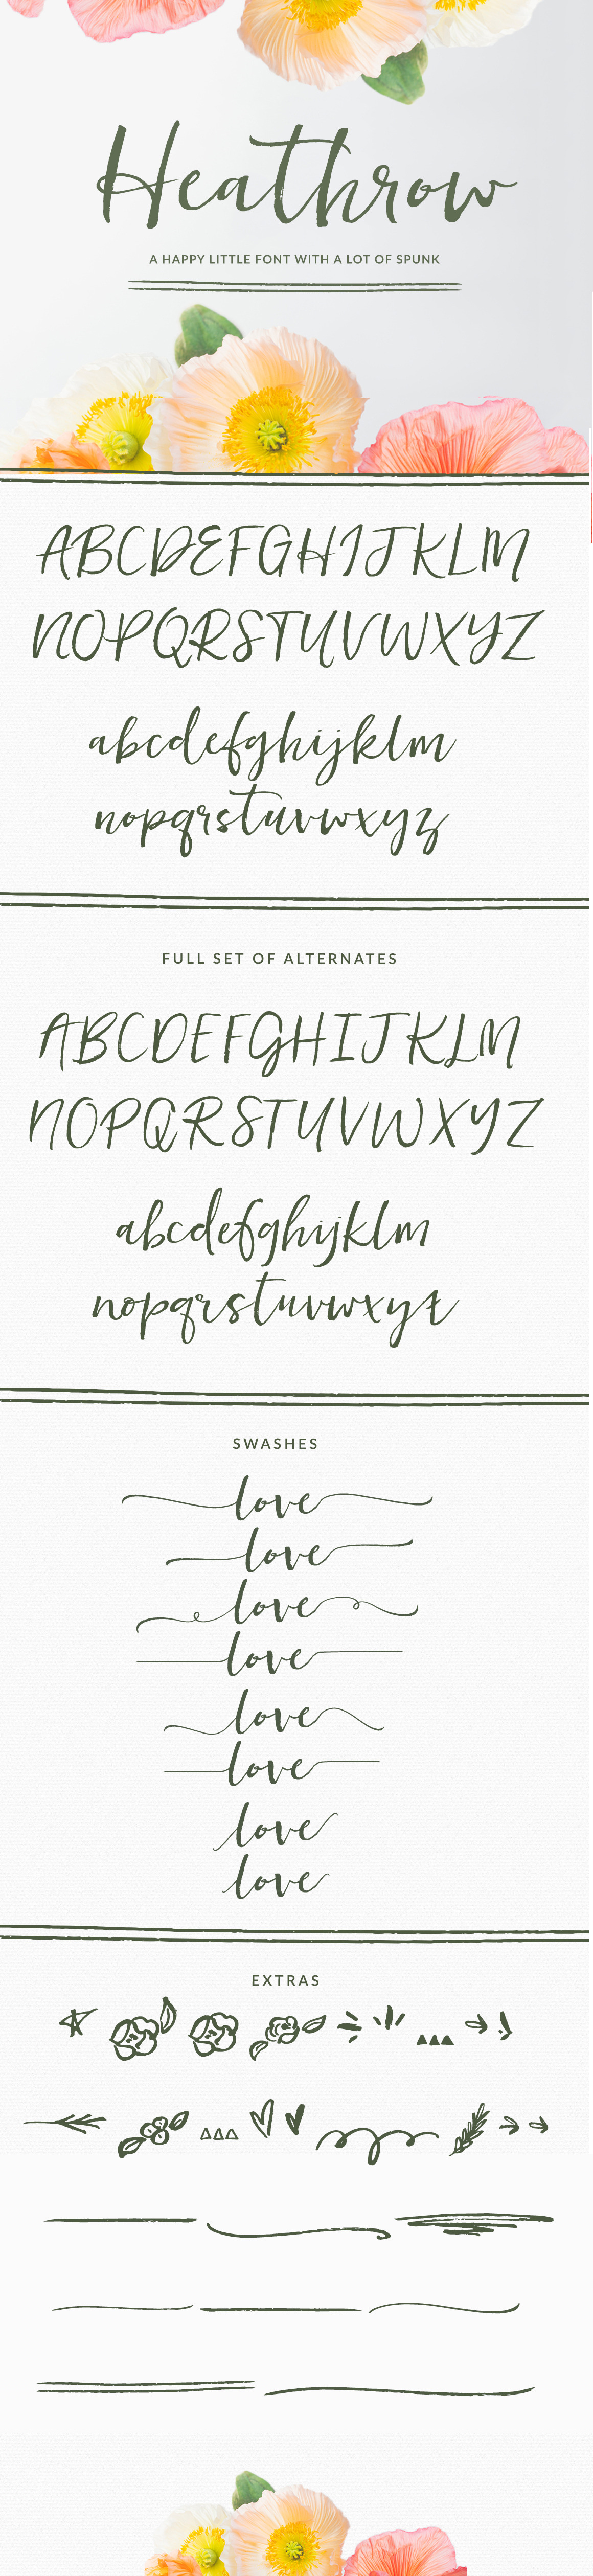 Heathrow
A HAPPY LITTLE FONT WITH A LOT OF SPUNK
ABCDEFGHIJKLM
NOPQRSTUVWXYZ
abcdefghijklm
nopqrstuvwxyz
FULL SET OF ALTERNATES
ABCDEFGHIJKLM
NOPQRSTUVWXYZ
abcdefghijklm
nopqrstuvwxyz
SWASHES
love
love
love
love
love
love
love
love
EXTRAS